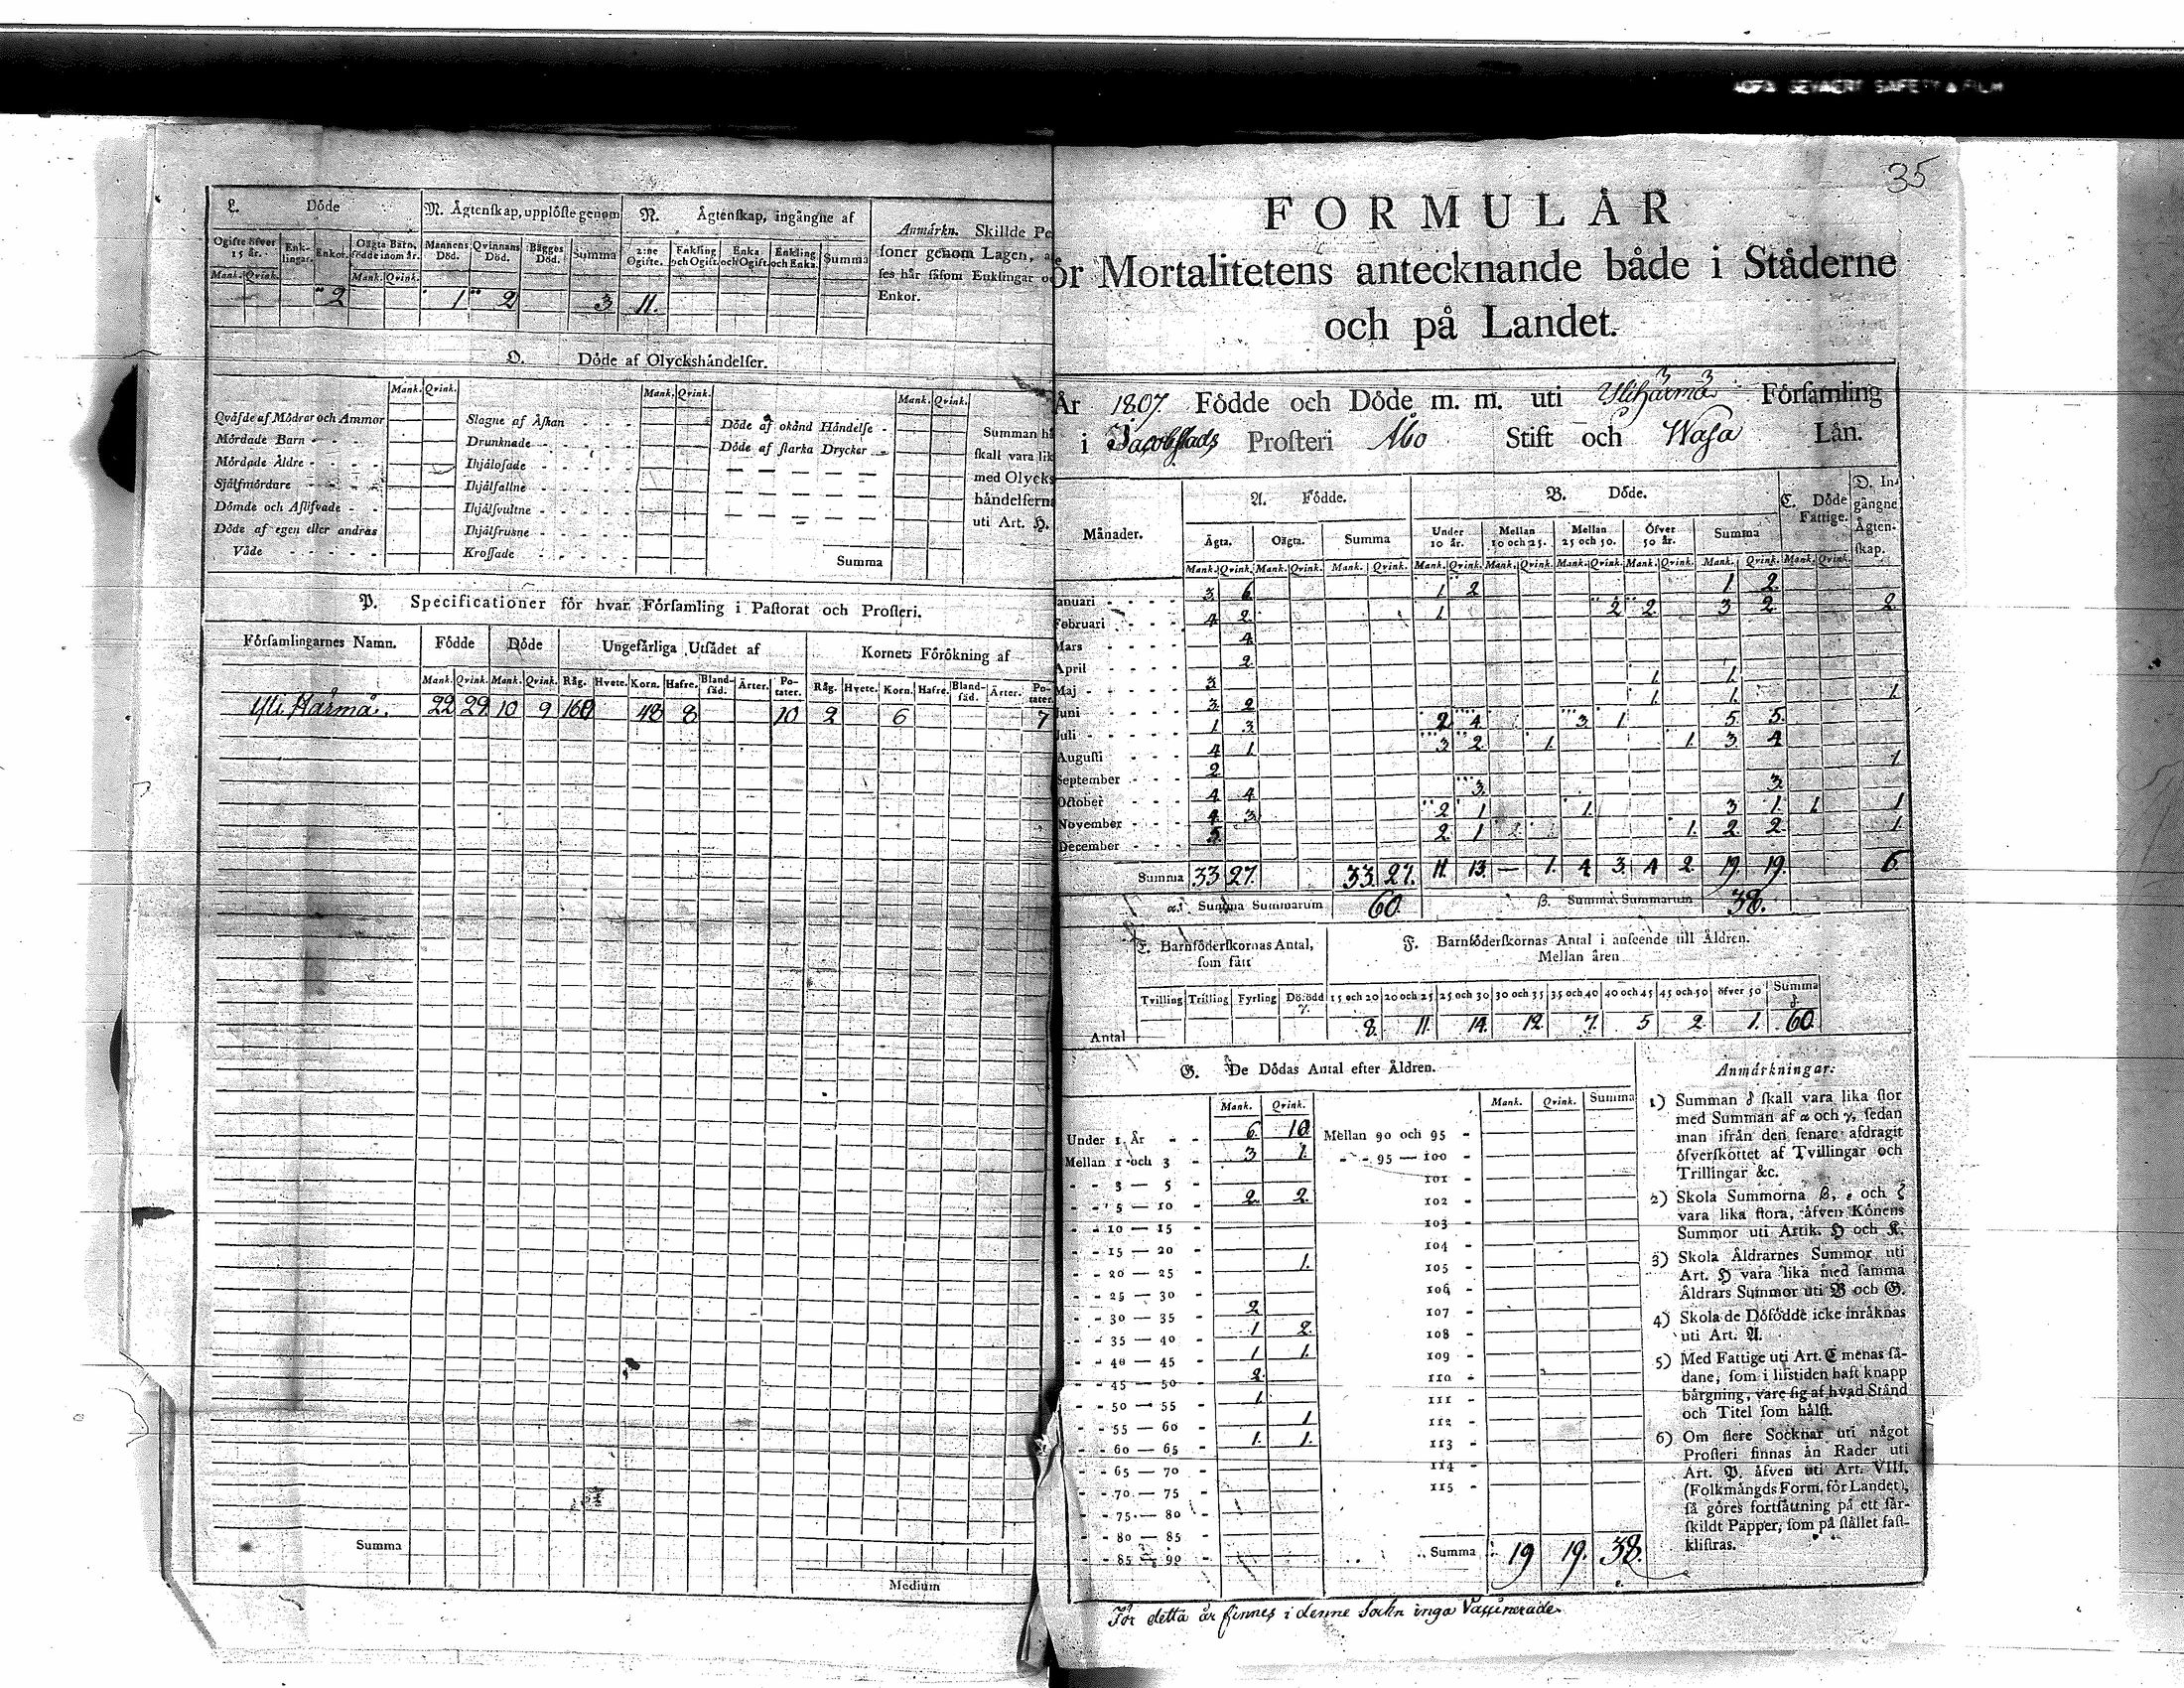 AGFA GEVAERT SAFETY FILM
L. Döde
M. Ägtenskap, upplöste genom
N. Ägtenskap, ingångne af
Ogifte öfver 15 år.
Enklingar.
Enkor.
Oägta Barn, födde inom år.
Mannens Död.
Qvinnans Död.
Bägges Död.
Summa
2:ne Ogifte.
Enkling och Ogift.
Enka och Ogift.
Enkling och Enka.
Summa
Mank. Qvink. Mank. Qvink.
2 1 2 3 11.
Anmärkn. Skillde Pe
soner genom Lagen, a
ses här såsom Enklingar o
Enkor.
O. Döde af Olyckshändelser.
Mank. Qvink. Mank. Qvink. Mank. Qvink.
Qväfde af Mödrar och Ammor
Mördade Barn
Mördade Äldre
Självfmördare
Dömde och Aflifvade
Döde af egen eller andras
Våde
Slagne af Åskan
Drunknade
Ihjälosade
Ihjälfallne
Ihjälsvultne
Ihjälfrusne
Krossade
Döde af okänd Händelse
Döde af starka Drycker
Summa
Summan hä
skall vara lik
med Olycks
händelserna
uti Art. H.
P. Specificationer för hvar Församling i Pastorat och Prosteri.
Församlingarnes Namn. Födde Döde Ungefärliga Utsädet af Kornets Förökning af
Mank. Qvink. Mank. Qvink. Råg. Hvete. Korn. Hafre. Blandsäd. Ärter. Potater. Råg. Hvete. Korn. Hafre. Blandsäd. Ärter. Potater.
Yli Härmä. 22 29 10 9 160 48 8 10 2 6 7
Summa
Medium
35
FORMULÄR
ör Mortalitetens antecknande både i Städerne
och på Landet.
År 1807. Födde och Döde m. m. uti Ylihärmä Församling
i Jacobstads Prosteri Åbo Stift och Wasa Län.
Månader.
A. Födde.
B. Döde.
C. Döde Fattige.
D. Ingångne Ägtenskap.
Ägta. Oägta. Summa
Under 10 år. Mellan 10 och 25. Mellan 25 och 50. Öfver 50 år. Summa
Mank. Qvink. Mank. Qvink. Mank. Qvink. Mank. Qvink. Mank. Qvink. Mank. Qvink. Mank. Qvink. Mank. Qvink. Mank. Qvink.
Januari 3 6 1 2 1 2
Februari 4 2 1 2 2 3 2 2
Mars 4
April 2
Maj 3 1. 1.
Juni 3 2 1. 1. 1.
Juli 1 3 2 4 3 1 5 5
Augusti 4 1. 3 2 1. 1. 3 4
September 2 1
October 4 4 3 3
November 4 3 2 1 1. 3 1. 1 1
December 5 2 1 1. 2 2 1.
Summa 33 27. 33 27. 11 13 — 1. 4 3 4 2. 19 19. 6.
α. Summa Summarum 60. β. Summa Summarum 38.
E. Barnföderskornas Antal, som fått
F. Barnföderskornas Antal i anseende till Åldren.
Mellan åren
Tvilling Trilling Fyrling Dödfödd γ. 15 och 20 20 och 25 25 och 30 30 och 35 35 och 40 40 och 45 45 och 50 öfver 50 Summa δ.
Antal 8. 11. 14. 12. 7. 5 2 1. 60
G. De Dödas Antal efter Åldren.
Mank. Qvink. Mank. Qvink. Summa
Under 1. År 6. 10
Mellan 1 och 3 3 1.
3 — 5
5 — 10 2 2.
10 — 15
15 — 20
20 — 25 1.
25 — 30
30 — 35 2
35 — 40 1 2.
40 — 45 1 1.
45 — 50 2.
50 — 55 1.
55 — 60 1
60 — 65 1. 1.
65 — 70
70 — 75
75 — 80
80 — 85
85 — 90
Mellan 90 och 95
95 — 100
101
102
103
104
105
106
107
108
109
110
111
112
113
114
115
Summa 19 19. 38.
Anmärkningar:
1) Summan δ skall vara lika stor
med Summan af α och γ, sedan
man ifrån den senare afdragit
öfverskottet af Tvillingar och
Trillingar &c.
2) Skola Summorna β, ε och ζ
vara lika stora, äfven Könens
Summor uti Artik. H och K.
3) Skola Åldrarnes Summor uti
Art. H vara lika med samma
Åldrars Summor uti B och G.
4) Skola de Döfödde icke inräknas
uti Art. A.
5) Med Fattige uti Art. C menas så-
dane, som i lifstiden haft knapp
bärgning, vare sig af hvad Stånd
och Titel som hälst.
6) Om flere Socknar uti något
Prosteri finnas än Rader uti
Art. P. äfven uti Art. VIII.
(Folkmängds Form. för Landet),
så göres fortsättning på ett sär-
skildt Papper, som på stället fast-
klistras.
För detta år finnes i denne Sockn inga Vaccinerade.